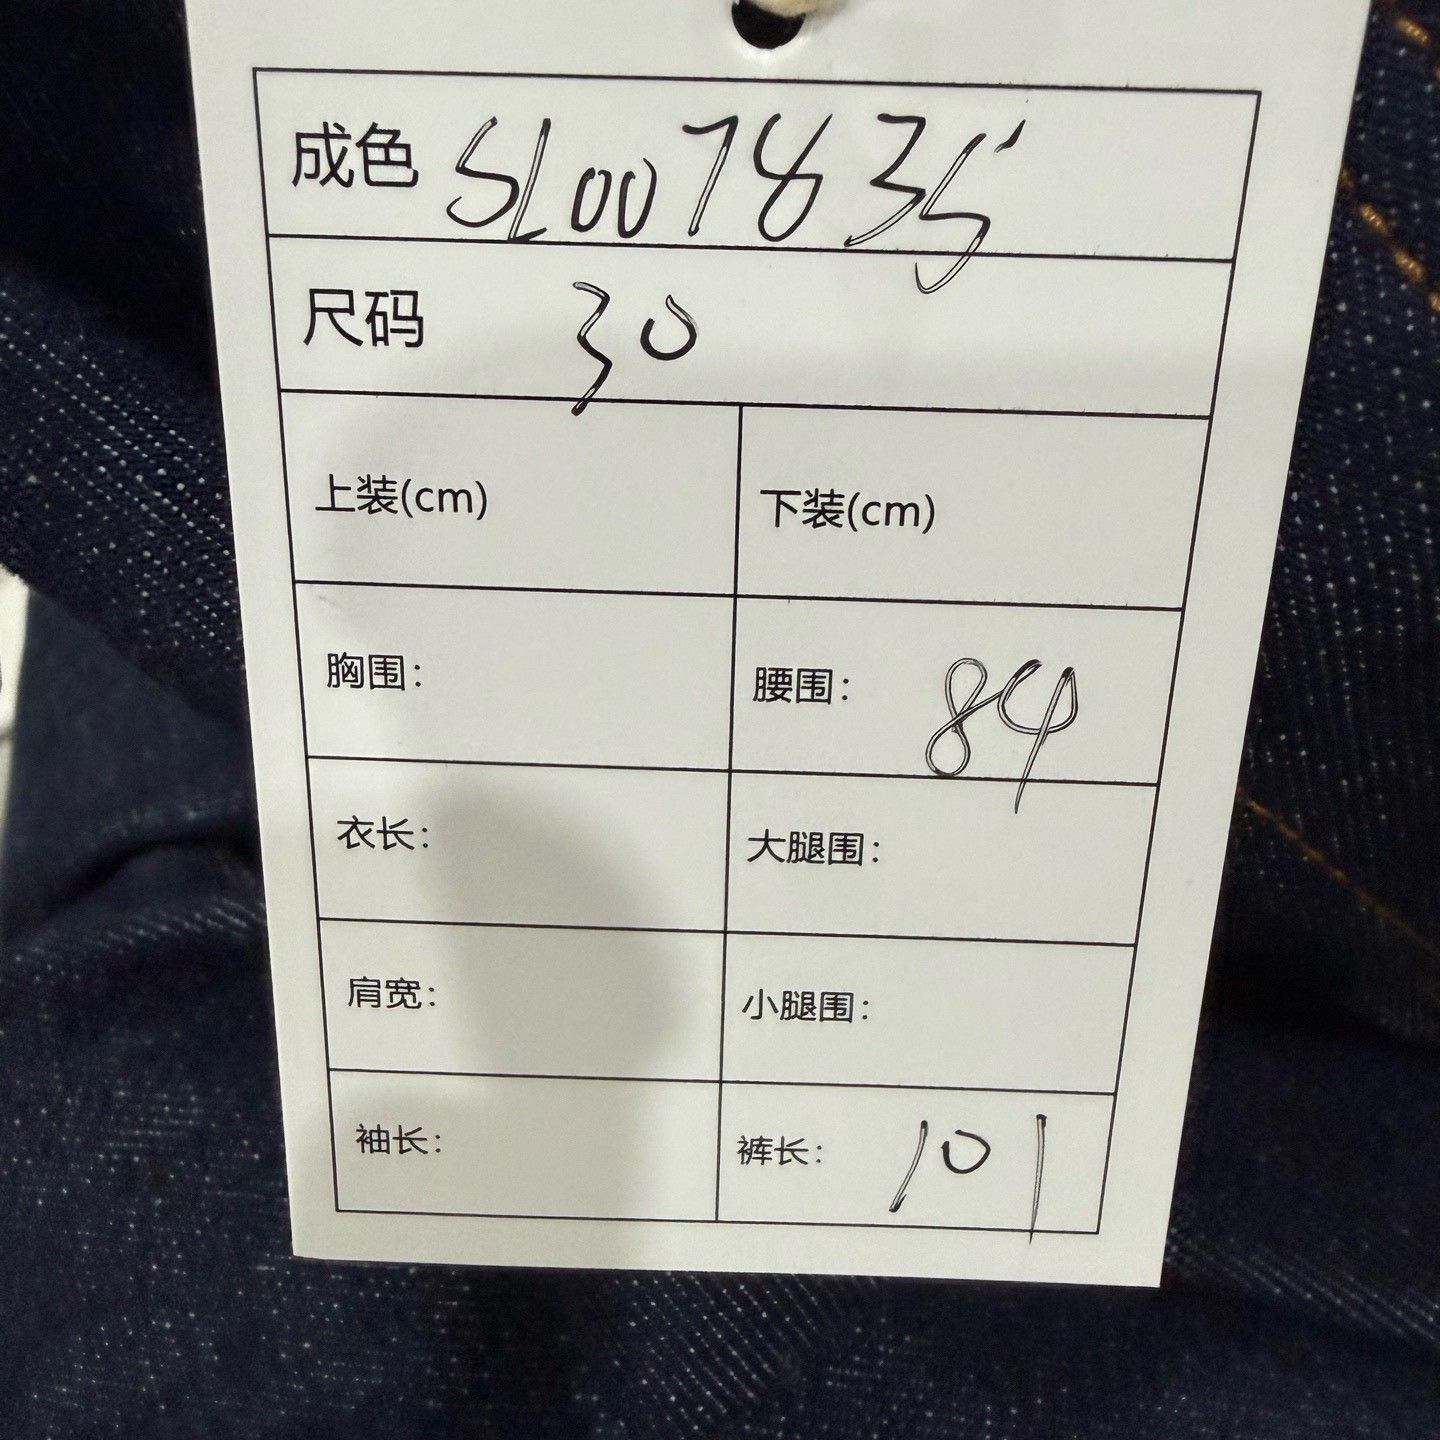 成色 SL007835
尺码 30
上装(cm) 下装(cm)
胸围: 腰围: 84
衣长: 大腿围:
肩宽: 小腿围:
袖长: 裤长: 101